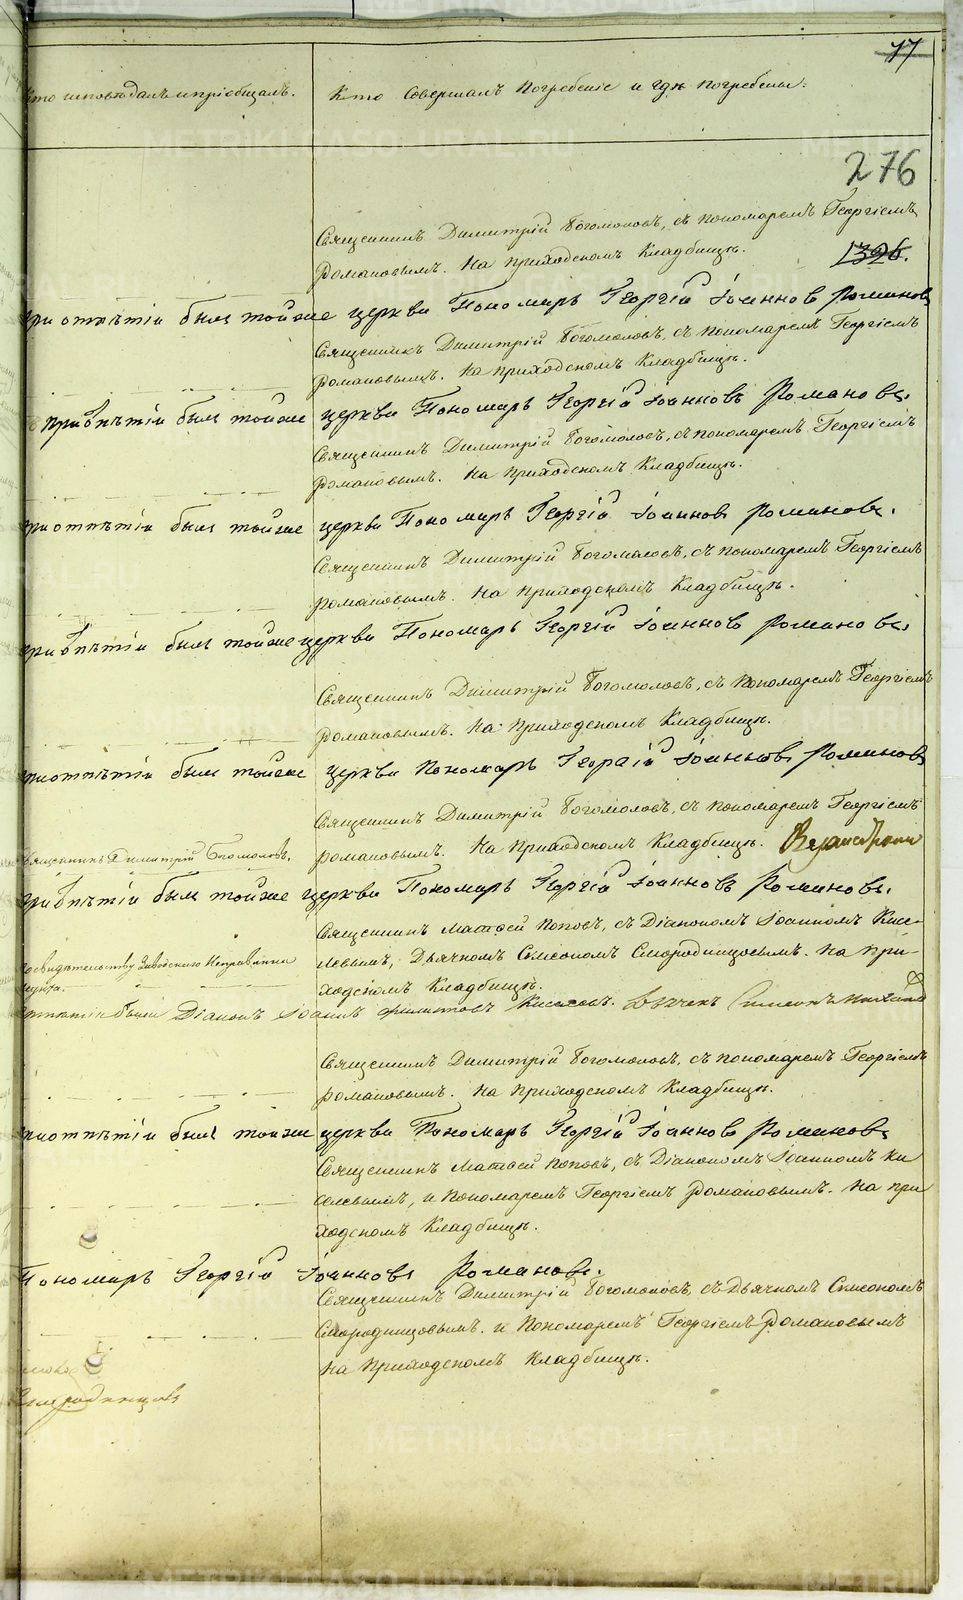 77
Кто исповѣдалъ и пріобщалъ.
Кто Совершалъ Погребеніе и гдѣ погребены.
276
Священникъ Димитрій Богомоловъ, съ пономаремъ Георгіемъ
Романовымъ. На Приходскомъ Кладбищѣ.
1326.
при отпѣтіи былъ тойже церкви Пономарь Георгій Іоанновъ Романовъ
Священникъ Димитрій Богомоловъ, съ пономаремъ Георгіемъ
Романовымъ. На Приходскомъ Кладбищѣ.
При отпѣтіи былъ тойже церкви Пономарь Георгій Іоанновъ Романовъ.
Священникъ Димитрій Богомоловъ, съ пономаремъ Георгіемъ
Романовымъ. На Приходскомъ Кладбищѣ.
при отпѣтіи былъ тойже церкви Пономарь Георгій Іоанновъ Романовъ.
Священникъ Димитрій Богомоловъ, съ пономаремъ Георгіемъ
Романовымъ. На Приходскомъ Кладбищѣ.
при отпѣтіи былъ тойже церкви Пономарь Георгій Іоанновъ Романовъ.
Священникъ Димитрій Богомоловъ, съ Пономаремъ Георгіемъ
Романовымъ. На Приходскомъ Кладбищѣ.
при отпѣтіи былъ тойже церкви Пономарь Георгій Іоанновъ Романовъ
Священникъ Димитрій Богомоловъ, съ пономаремъ Георгіемъ
Романовымъ. На Приходскомъ Кладбищѣ.
Священникъ Димитрій Богомоловъ.
при отпѣтіи былъ тойже церкви Пономарь Георгій Іоанновъ Романовъ.
Священникъ Матѳей Поповъ, съ Діакономъ Іоанномъ Кисе-
левымъ, Дьячкомъ Симеономъ Смородинцовымъ. На При-
ходскомъ Кладбищѣ.
По свидѣтельству Заводскаго Исправника
отпѣтіи были Діаконъ Іоаннъ Филиповъ Киселевъ. Дьячекъ Симеонъ
Священникъ Димитрій Богомоловъ, съ пономаремъ Георгіемъ
Романовымъ. На Приходскомъ Кладбищѣ.
при отпѣтіи былъ тойже церкви Пономарь Георгій Іоанновъ Романовъ
Священникъ Матѳей Поповъ, съ Діакономъ Іоанномъ Ки
селевымъ, и Пономаремъ Георгіемъ Романовымъ. На при
ходскомъ Кладбищѣ.
Пономарь Георгій Іоанновъ Романовъ.
Священникъ Димитрій Богомоловъ, съ Дьячкомъ Симеономъ
Смородинцовымъ. и Пономаремъ Георгіемъ Романовымъ
На Приходскомъ Кладбищѣ.
Смородинцовъ
METRIKI.GASO-URAL.RU